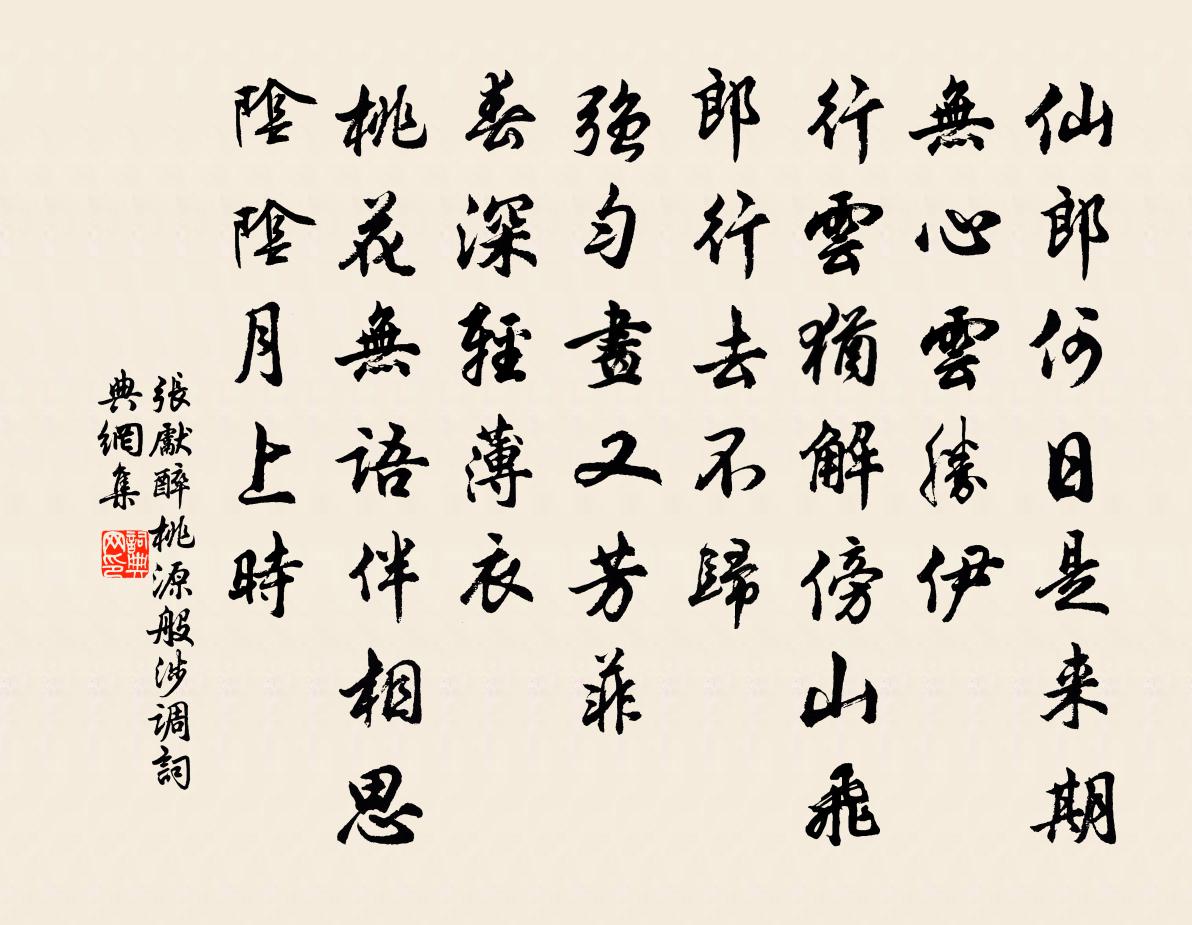 仙郎何日是来期
無心雲勝伊
行雲猶解傍山飛
郎行去不歸
強勻畫又芳菲
春深輕薄衣
桃花無語伴相思
陰陰月上時
張獻醉桃源般涉调詞
典網集
詞典
网印